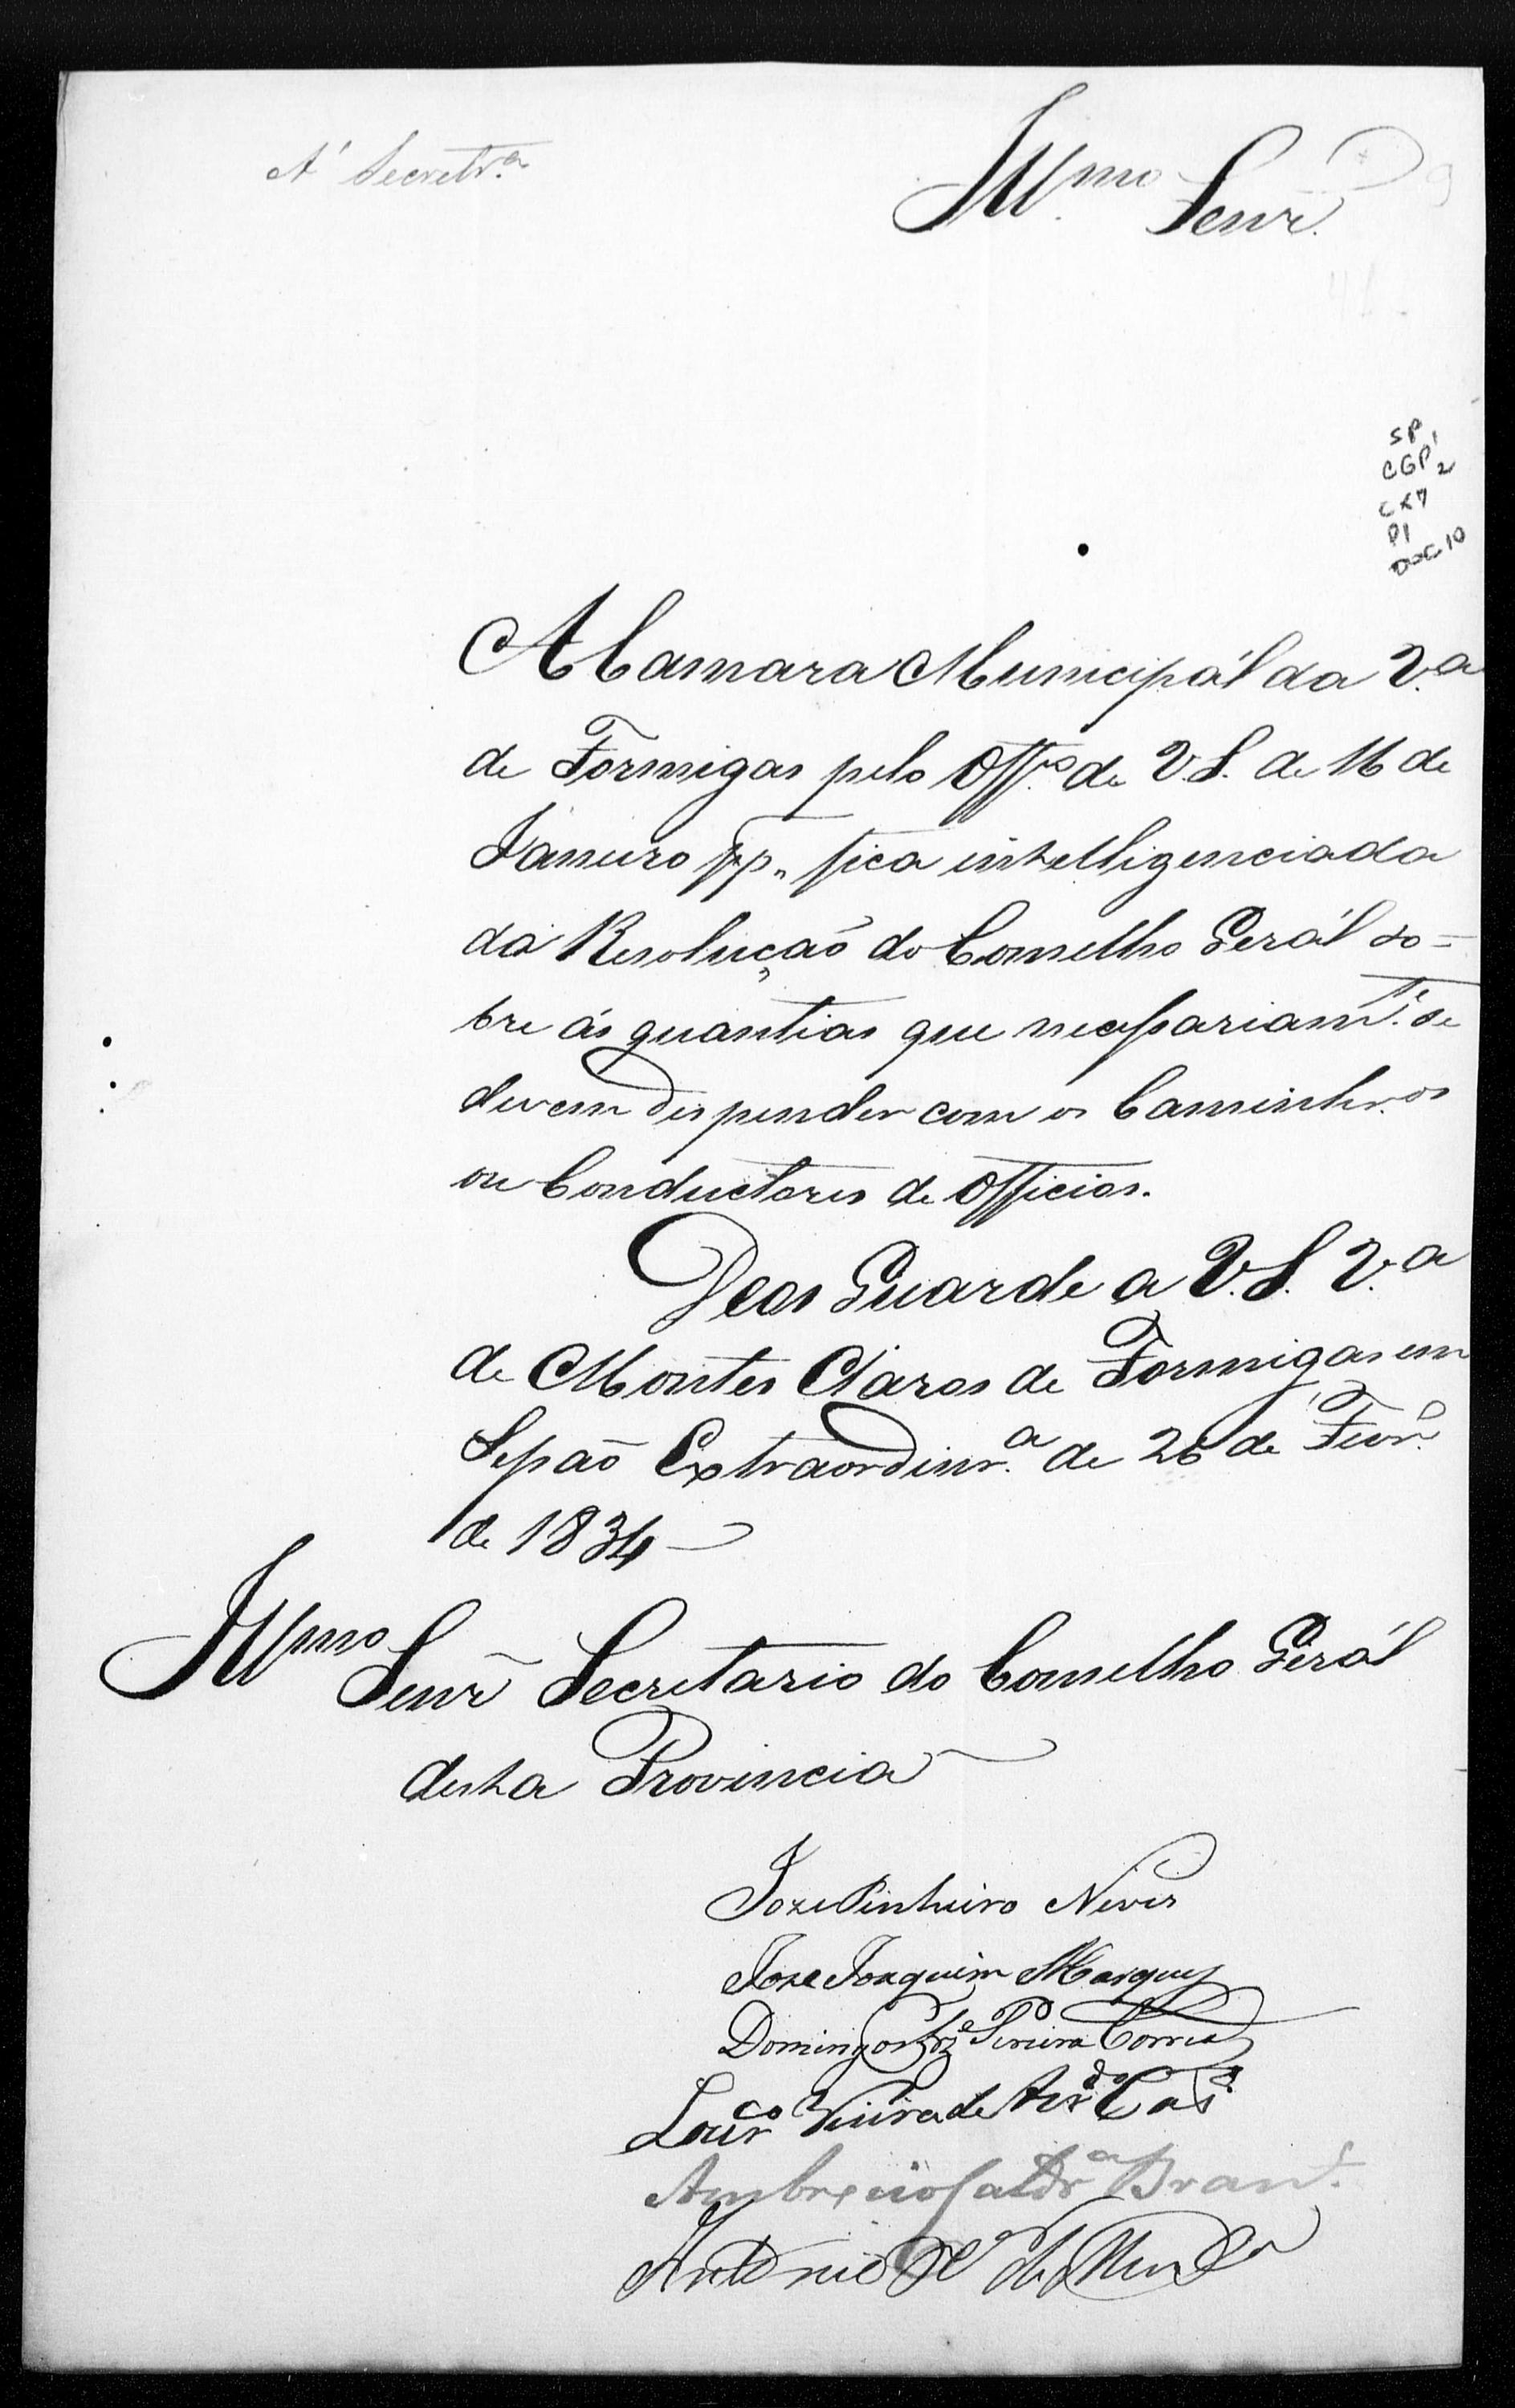 A' Secretr.a
Ill.mo Senr.
SP
CGP 1
2
CX7
P1
DOC. 10
A Camara Municipál da V.a
de Formigas pelo Off.o de V. S. de 16 de
Janeiro pp. fica intelligenciada
da Resolução do Conselho Gerál so=
bre ás quantias que necessariam.te se
devem dispender com os Caminhr.os
ou Conductores de Officios.
Deos Guarde a V. S. V.a
de Montes Claros de Formigas em
Sessão Extraordinr.a de 26 de Fevr.o
de 1834
Ill.mo Senr Secretario do Conselho Gerál
desta Provincia
Joze Pinheiro Neves
Joze Joaquim Marques
Domingos Joze Pereira Correa
Lour.co Vieira de Azr.do
Ambrozio Caldr.a Brant.
Antonio